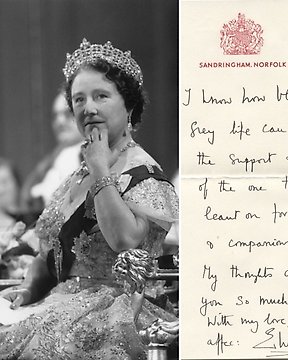 SANDRINGHAM, NORFOLK
I know how bl
Grey life can
the support
of the one
leant on for
& companion
My thoughts
you so much
With my love
affec: